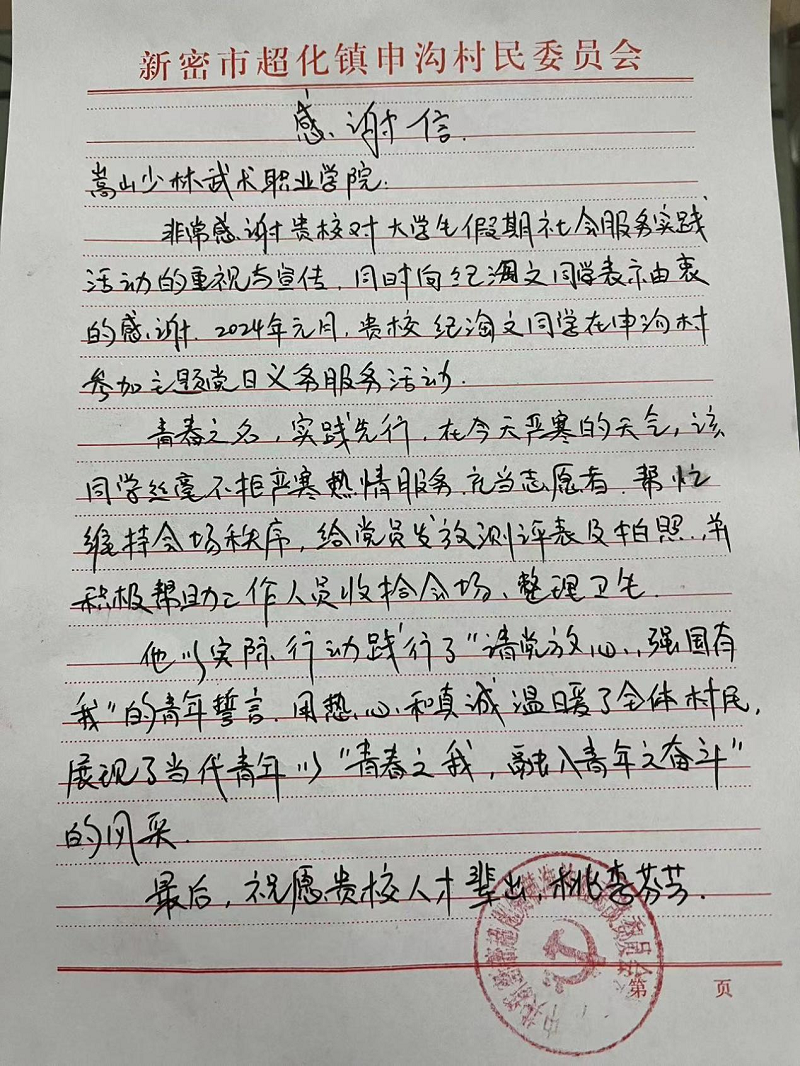 新密市超化镇申沟村民委员会
感谢信.
嵩山少林武术职业学院:
非常感谢贵校对大学生假期社会服务实践
活动的重视与宣传,同时向纪海文同学表示由衷
的感谢.2024年元月,贵校纪海文同学在申沟村
参加主题党日义务服务活动.
青春之名,实践先行,在今天严寒的天气,该
同学丝毫不拒严寒热情服务,充当志愿者,帮忙
维持会场秩序,给党员发放测评表及拍照,并
积极帮助工作人员收拾会场、整理卫生.
他以实际行动践行了“请党放心,强国有
我”的青年誓言.用热心和真诚温暖了全体村民,
展现了当代青年以“青春之我,融入青年之奋斗”
的风采.
最后,祝愿贵校人才辈出,桃李芬芳.
第 页